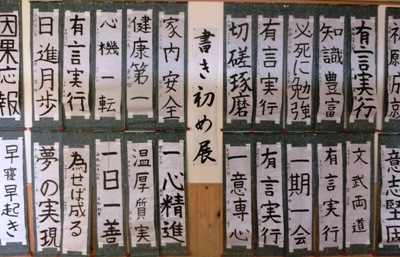 祈願成就
有言実行
知識豊富
必死に勉強
有言実行
切磋琢磨
書き初め展
家内安全
健康第一
心機一転
有言実行
日進月歩
因果応報
意志堅固
文武両道
有言実行
一期一会
有言実行
一意専心
一心精進
温厚質実
一日一善
為せば成る
夢の実現
早寝早起き